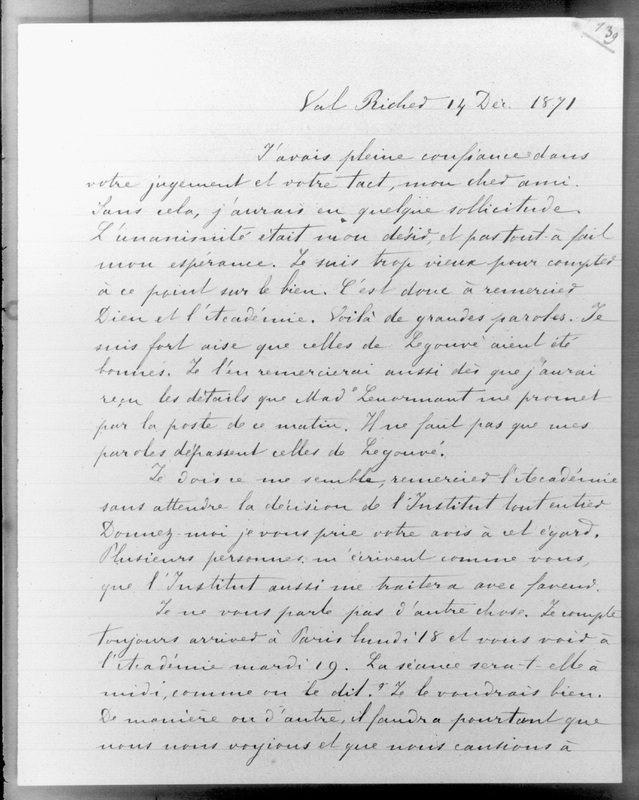 139
Val Richer 14 Déc. 1871
J'avais pleine confiance dans
votre jugement et votre tact, mon cher ami.
Sans cela, j'aurais eu quelque sollicitude.
L'unanimité était mon désir, et pas tout à fait
mon espérance. Je suis trop vieux pour compter
à ce point sur le bien. C'est donc à remercier
Dieu et l'Académie. Voilà de grandes paroles. Je
suis fort aise que celles de Legouvé aient été
bonnes. Je l'en remercierai aussi dès que j'aurai
reçu les détails que Mad^e Lenormant me promet
par la poste de ce matin. Il ne faut pas que mes
paroles dépassent celles de Legouvé.
Je dois ce me semble, remercier l'Académie
sans attendre la décision de l'Institut tout entier
Donnez-moi je vous prie votre avis à cet égard.
Plusieurs personnes m'écrivent comme vous,
que l'Institut aussi me traitera avec faveur.
Je ne vous parle pas d'autre chose. Je compte
toujours arriver à Paris lundi 18 et vous voir à
l'Académie mardi 19. La séance sera-t-elle à
midi, comme on le dit ? Je le voudrais bien.
De manière ou d'autre, il faudra pourtant que
nous nous voyions et que nous causions à